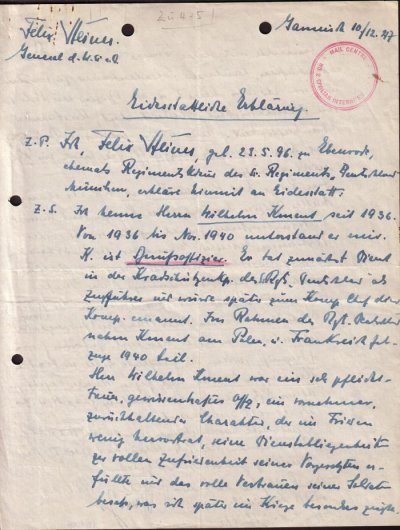 Felix Steiner.
General d. W. SS a. D.
zu 4-5!
Garmisch 10/12.47
MAIL CENTRE
CIVILIAN INTERNMENT
Eidesstattliche Erklärung.
z.P. Ich, Felix Steiner, geb. 23.5.96. zu Ebenrode,
ehemals Regimentskdeur des Regiments Deutschland
München, erkläre hiermit an Eidesstatt:
z.S. Ich kenne Herrn Wilhelm Kment seit 1936.
Von 1936 bis Nov. 1940 unterstand er mir.
K. ist Berufsoffizier. Er tat zunächst Dienst
in der Kradschützenkp. des Rgt. Deutschland als
Zugführer und wurde später zum Komp. Chef der
Komp. ernannt. Im Rahmen des Rgt. Deutschland
nahm Kment am Polen u. Frankreich feld-
zuge 1940 teil.
Herr Wilhelm Kment war ein sehr pflicht-
treuer, gewissenhafter Offz, ein vornehmer,
zurückhaltender Charakter, der im Frieden
wenig hervortrat, seine Dienstobliegenheiten
zur vollen Zufriedenheit seiner Vorgesetzten er-
füllte und das volle Vertrauen seiner Soldaten
besass, was sich später im Kriege besonders zeigte.